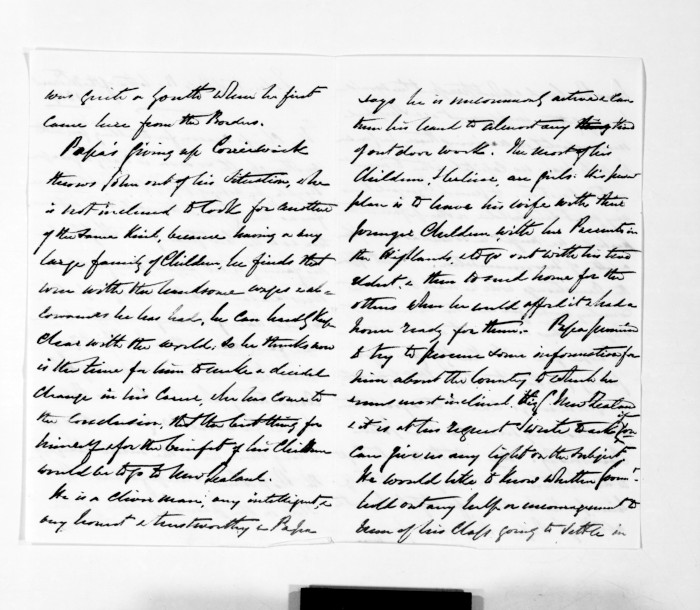 was quite a youth when he first
came here from the Borders.
Papa's giving up
throws John out of his situation, & he
is not inclined to look for another
of the same kind, because having a very
large family of Children, he finds that
even with the handsome wages &
he has had, he can hardly keep
clear with the world; so he thinks now
is the time for him to make a decided
change in his , & he has come to
the conclusion, that the best thing for
himself & for the benefit of his Children
would be to go to New Zealand.
He is a clever man, very intelligent, &
very honest & trustworthy & Papa
says he is uncommonly active & can
turn his hand to almost any kind
of outdoor work. The most of his
Children, I believe, are girls. His
plan is to leave his wife with three
younger Children, with her Parents in
the Highlands, & to go out with his two
eldest, & then to send home for the
others when he could afford it & had a
home ready for them. Papa promised
to try to procure some information for
him about the Country to which he
seems most inclined New Zealand
& it is at his request I write to ask if you
can give us any light on the subject.
He would like to know whether Govmt.
hold out any help or encouragement to
men of his Class going to settle in